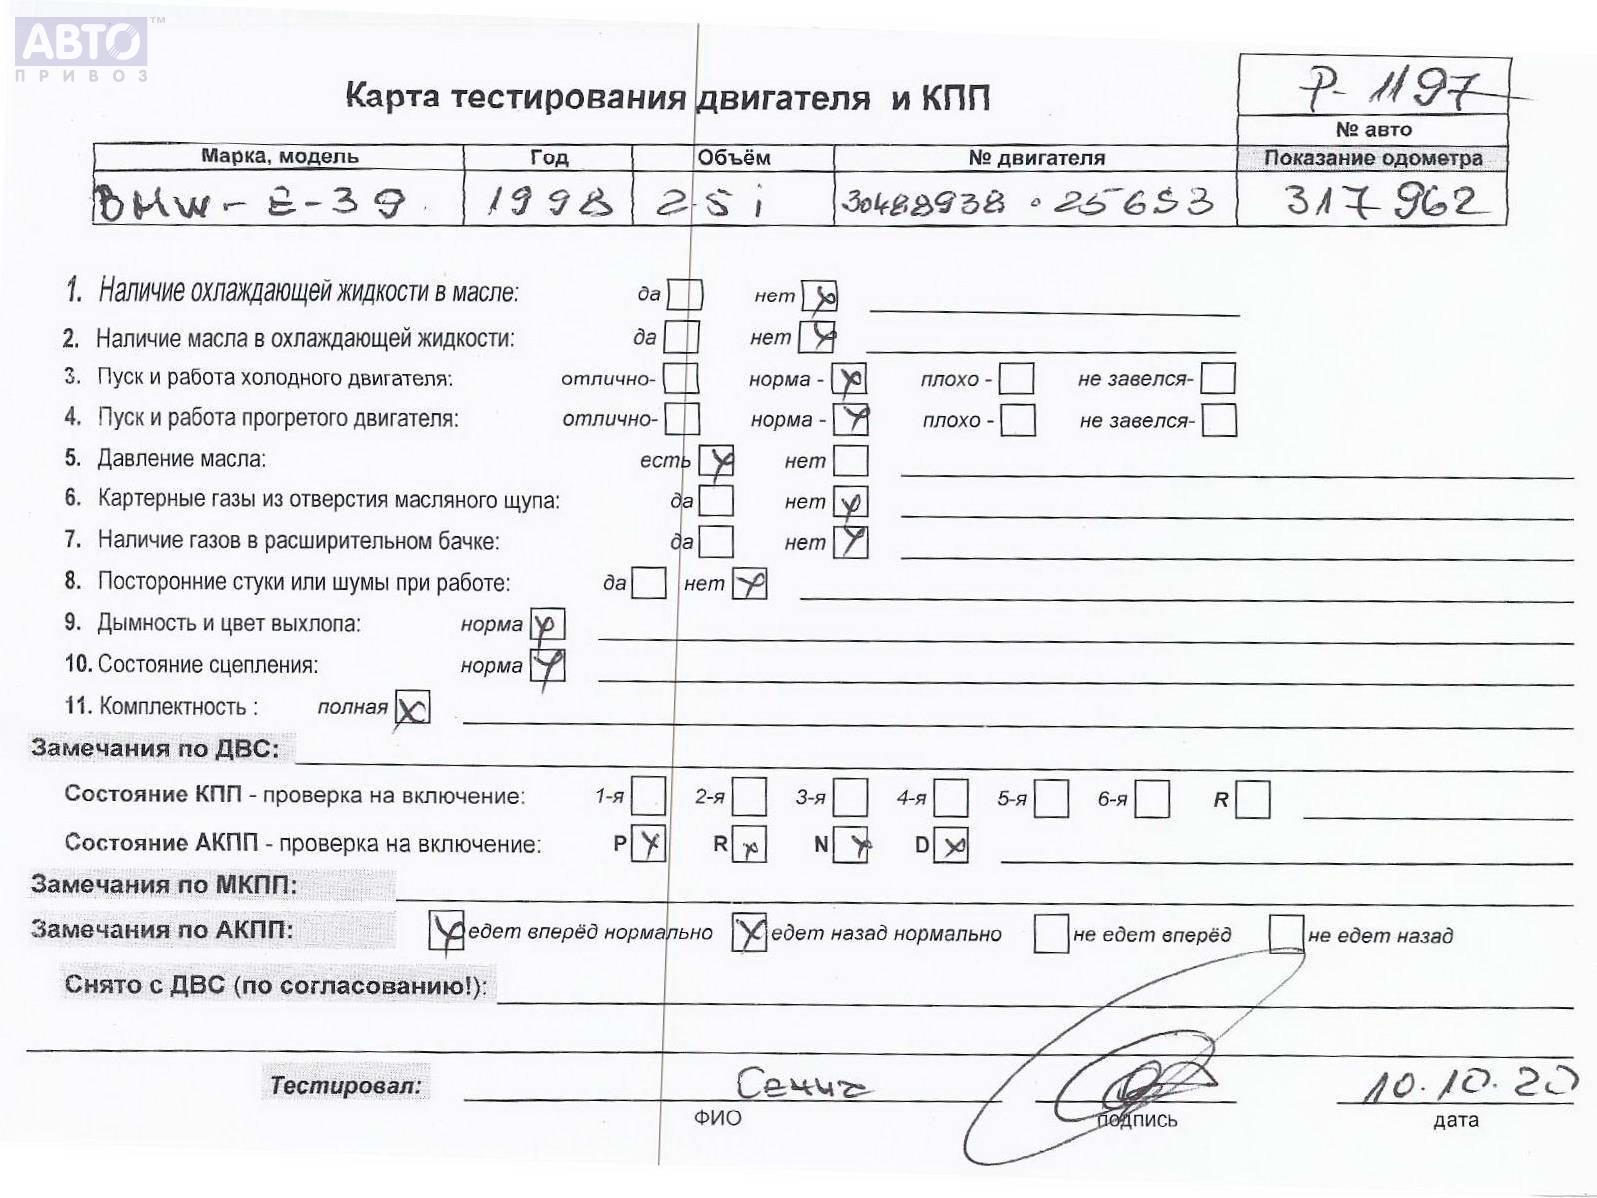 АВТО™
ПРИВОЗ
Карта тестирования двигателя и КПП
Р-1197
№ авто
Марка, модель Год Объём № двигателя Показание одометра
BMW-E-39 1998 2.5 i 30488938 · 256S3 317962
1. Наличие охлаждающей жидкости в масле: да нет
2. Наличие масла в охлаждающей жидкости: да нет
3. Пуск и работа холодного двигателя: отлично- норма - плохо - не завелся-
4. Пуск и работа прогретого двигателя: отлично- норма - плохо - не завелся-
5. Давление масла: есть нет
6. Картерные газы из отверстия масляного щупа: да нет
7. Наличие газов в расширительном бачке: да нет
8. Посторонние стуки или шумы при работе: да нет
9. Дымность и цвет выхлопа: норма
10. Состояние сцепления: норма
11. Комплектность : полная
Замечания по ДВС:
Состояние КПП - проверка на включение: 1-я 2-я 3-я 4-я 5-я 6-я R
Состояние АКПП - проверка на включение: P R N D
Замечания по МКПП:
Замечания по АКПП: едет вперёд нормально едет назад нормально не едет вперёд не едет назад
Снято с ДВС (по согласованию!):
Тестировал: 10.10.20
ФИО подпись дата